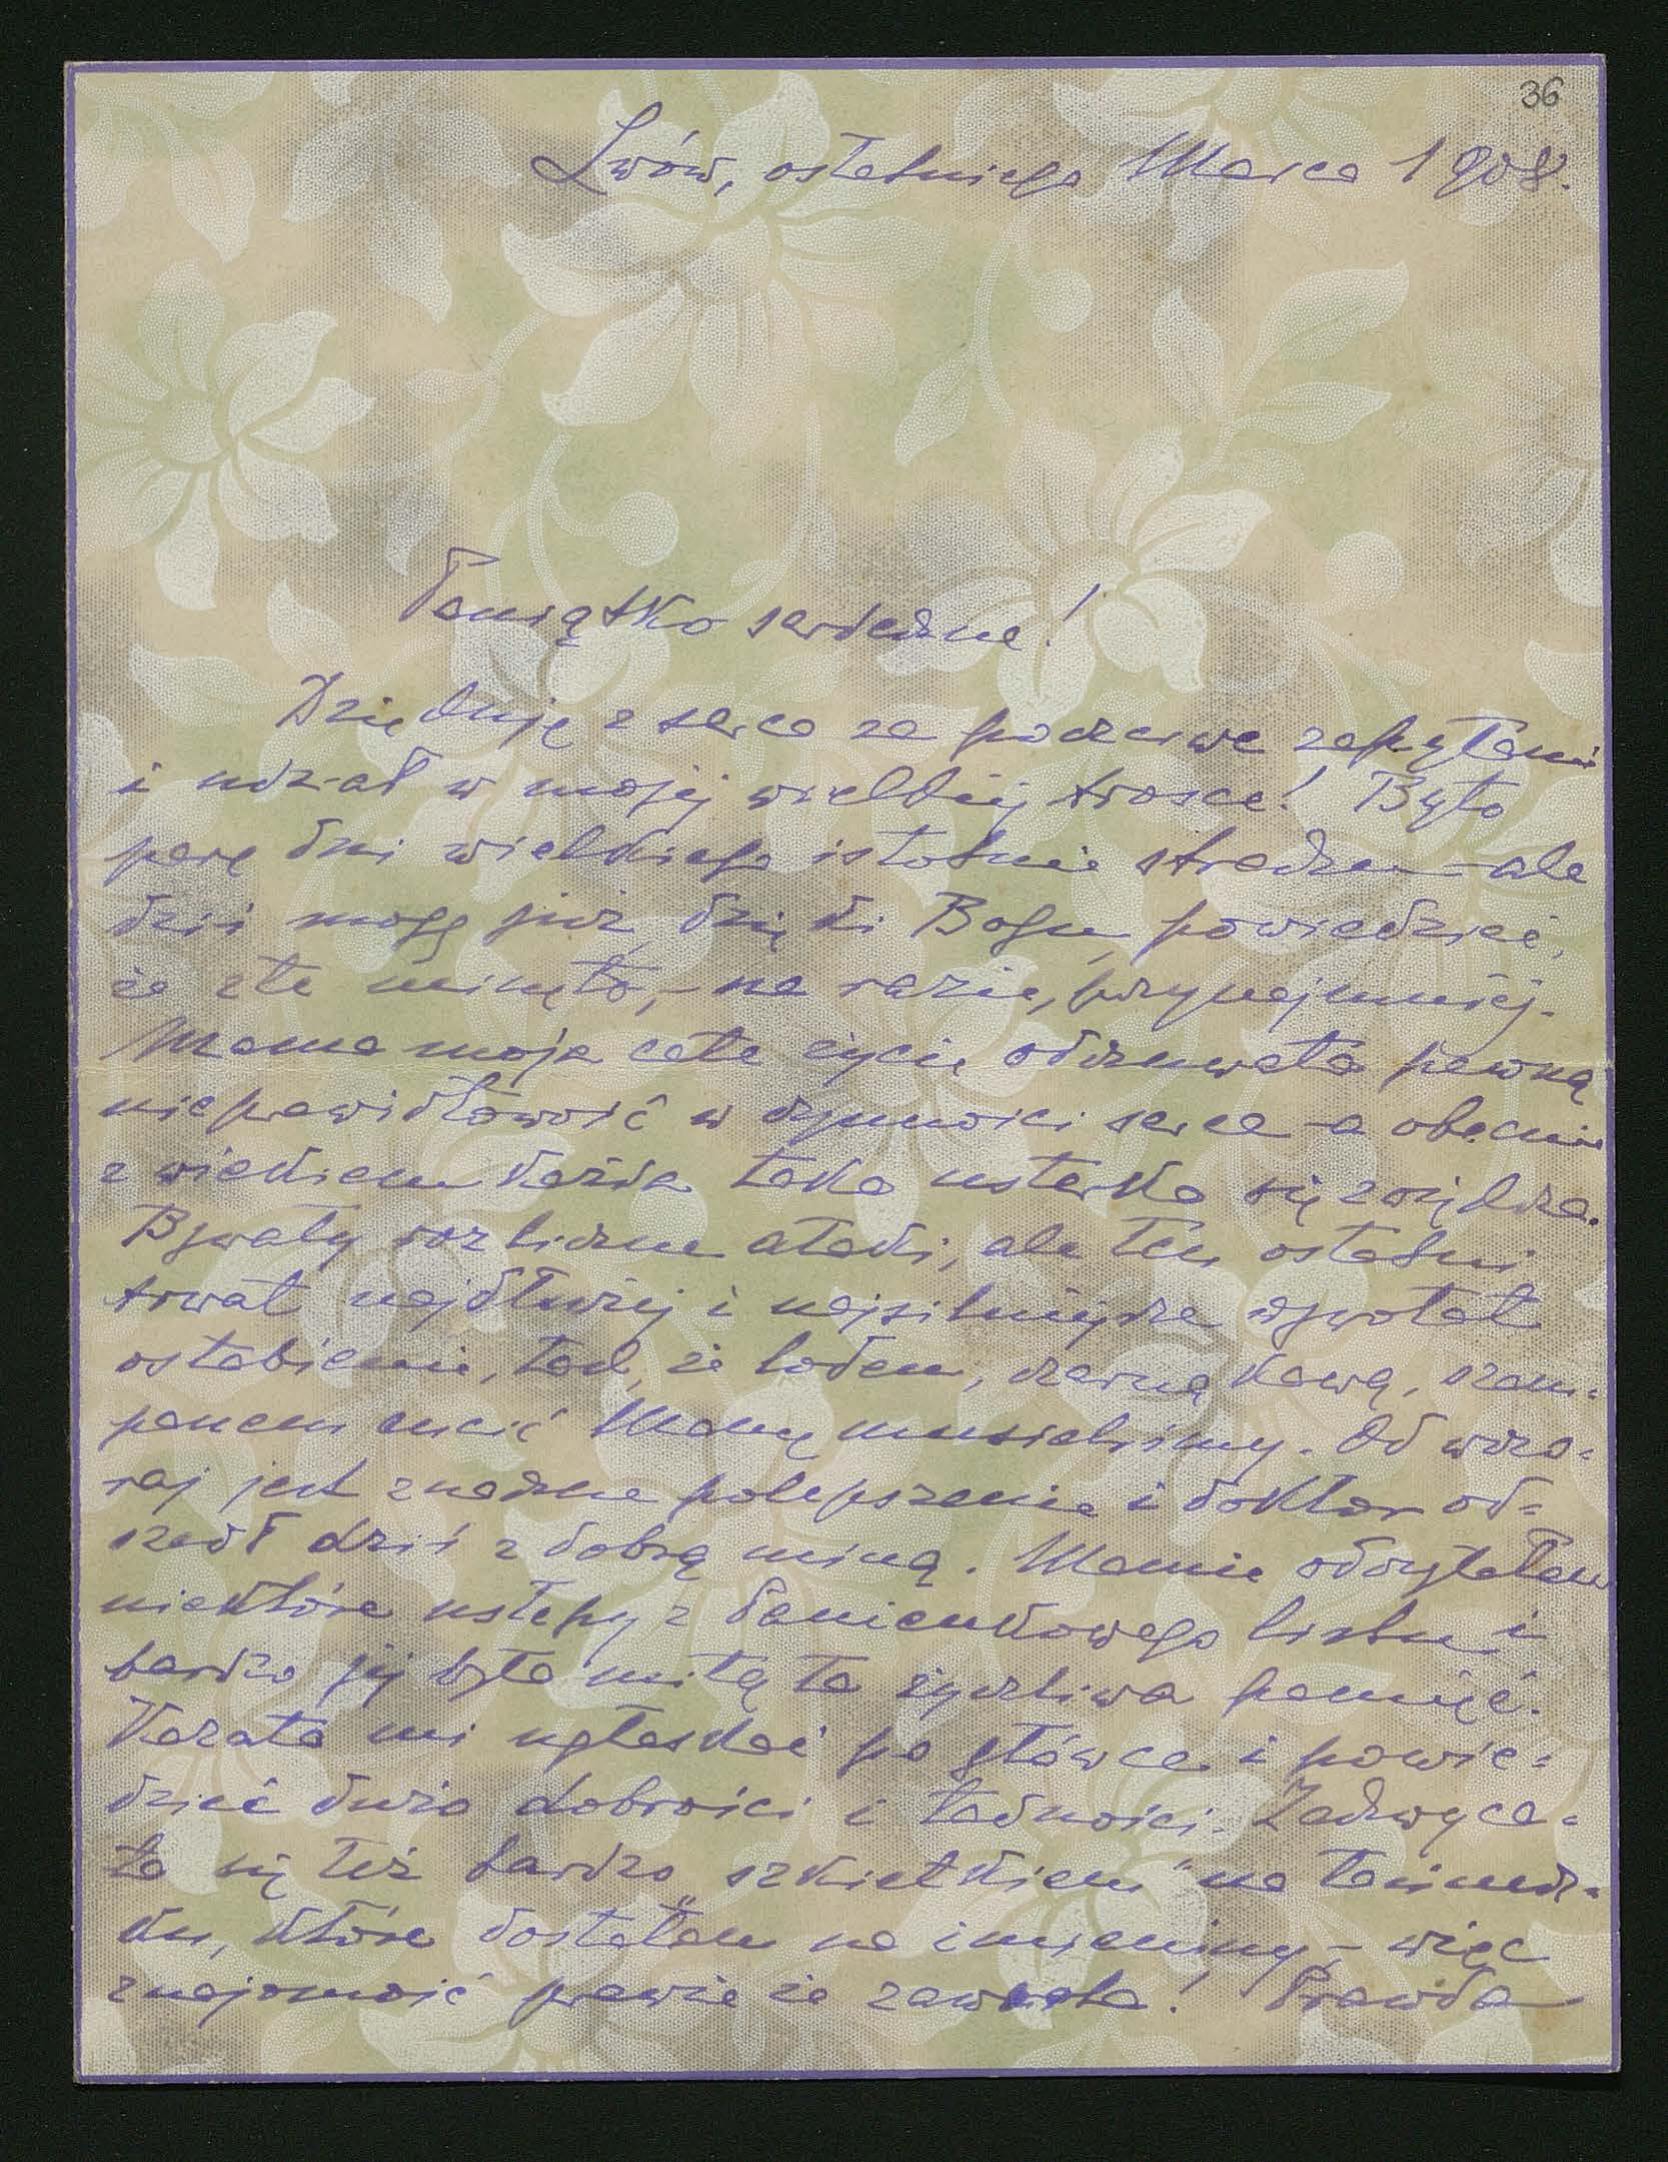 36
Lwów, ostatniego Marca 1908.
Paniątko serdeczne!
Dziękuję z serca za poczciwe zapytanie
i udział w mojej wielkiej trosce! Było
parę dni wielkiego istotnie strachu – ale
dziś mogę już, dzięki Bogu, powiedzieć,
że złe minęło, – na razie, przynajmniej.
Mama moja całe życie odczuwała pewną
nieprawidłowość w czynności serca – a obecnie
z wiekiem każda taka usterka się zwiększa.
Bywały rozliczne ataki, ale ten ostatni
trwał najdłużej i najsilniejsze wywołał
osłabienie, tak, że lodem, czarną kawą, szam=
panem cucić Mamę musieliśmy. Od wczo=
raj jest znaczne polepszenie i doktor od=
szedł dziś z dobrą miną. Mamie odczytałem
niektóre ustępy z Panienkowego listu i
bardzo jej była miłą ta życzliwa pamięć.
Kazała mi ugłaskać po główce i powie=
dzieć dużo dobrości i ładności. Zachwyca=
ła się też bardzo „szkiełkiem" na łańcusz=
ku, które dostałem na imieniny, – więc
znajomość prawie że zawarta! Prawda